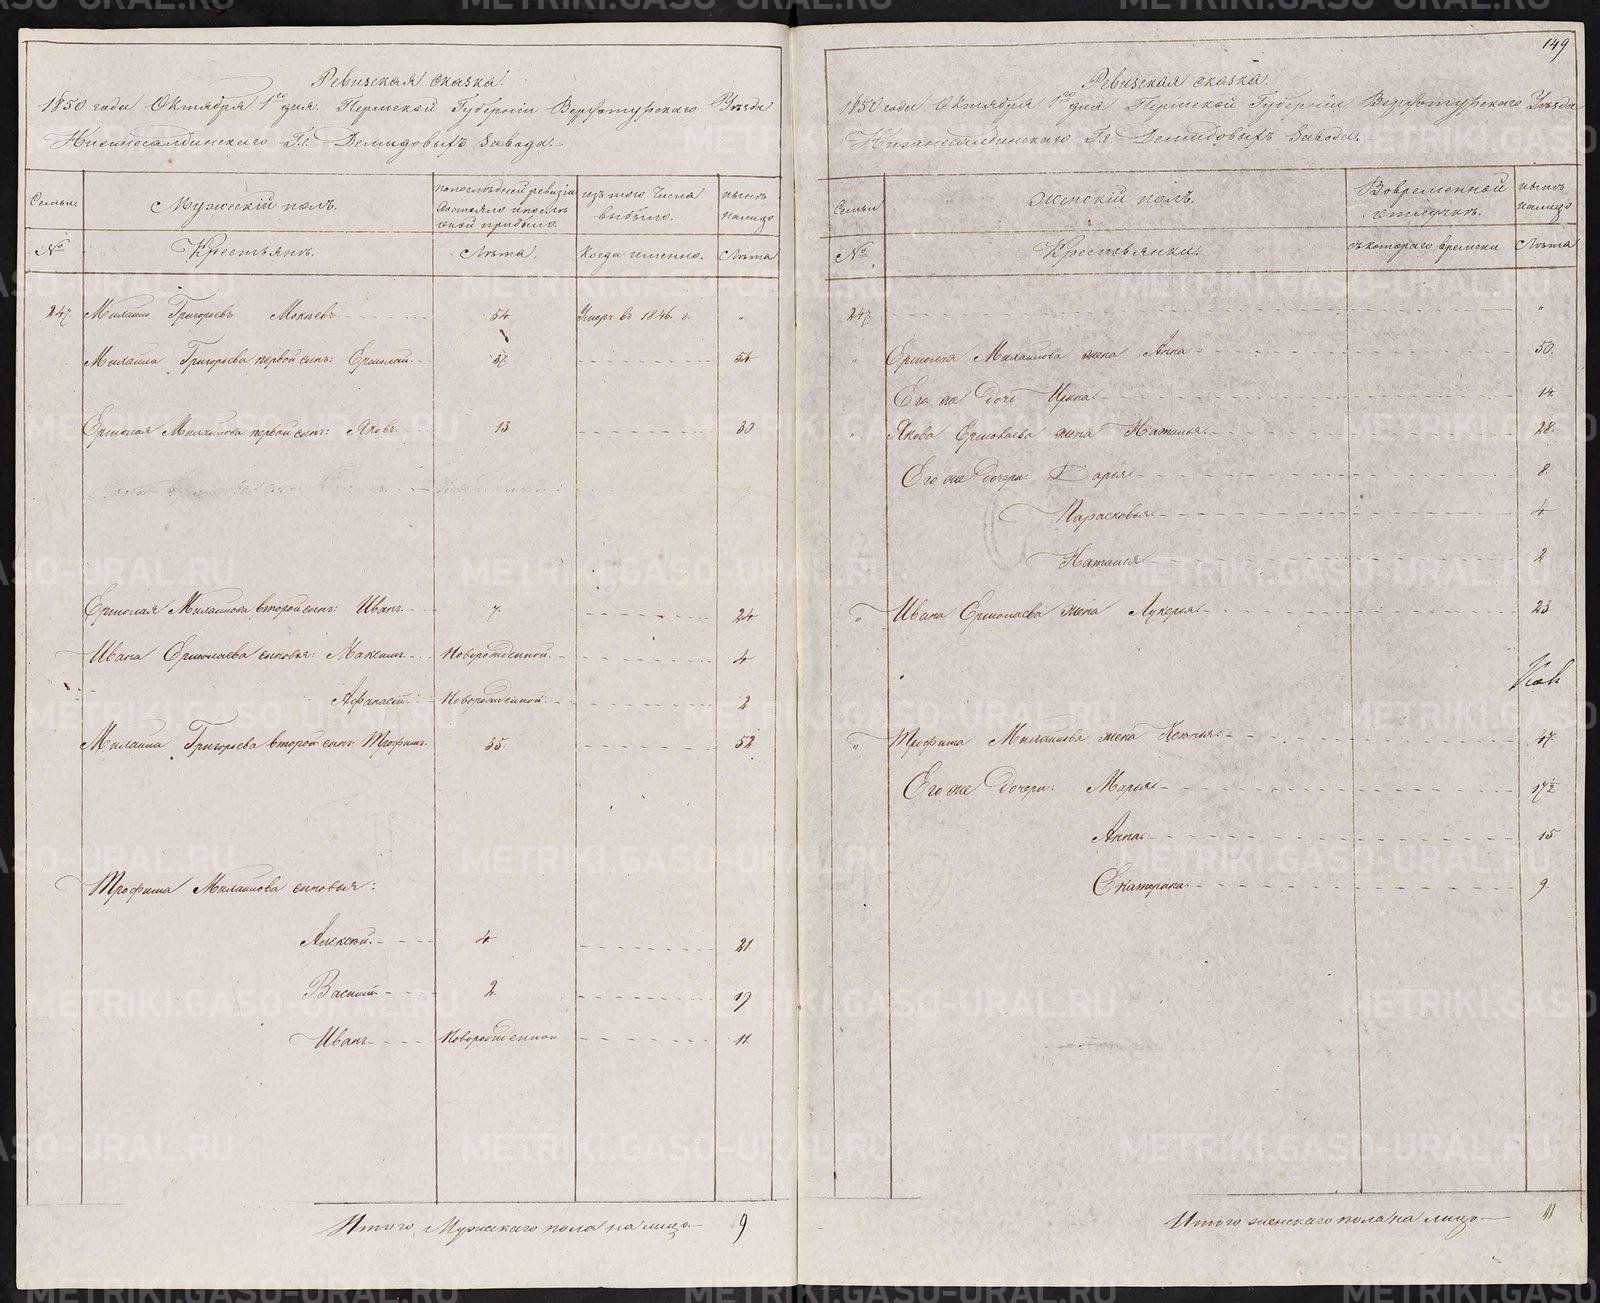 Ревизская сказка.
1850 года Октября 1го дня. Пермской Губерніи Верхотурскаго Уѣзда
Нижнесалдинскаго Г.г. Демидовыхъ Завода.
Семьи.
Мужескій полъ.
По последней ревизіи состояло и после оной прибыло.
Изъ того числа выбыло.
Нынѣ налицо
№
Крестьянъ.
Лѣта.
Когда именно.
Лѣта
247. Михаило Григорьевъ 54. Умеръ въ 1846. г. "
Михаила Григорьева первой сынъ: Ермолай 37. 54
Ермолая Михайлова первой сынъ: Яковъ 13 30
Ермолая Михайлова второй сынъ: Иванъ. 7. 24
Ивана Ермолаева сыновья: Максимъ Новорожденной. 4
Афанасій. Новорожденной 2
Михаила Григорьева второй сынъ: Трофимъ. 35. 52
Трофима Михайлова сыновья:
Алексѣй. 4 21.
Василій 2. 19
Иванъ Новорожденной 11.
Итого Мужескаго пола на лицо 9
149
Ревизская сказка.
1850 года Октября 1го дня Пермской Губерніи Верхотурскаго Уѣзда
Нижнесалдинскаго Г.г. Демидовыхъ Завода.
Семьи
Женскій полъ.
Во временной отлучкѣ.
Нынѣ налицо
№
Крестьянки.
Съ котораго времени
Лѣта
247. "
" Ермолая Михайлова жена Анна 50.
Его же дочь Ирина 14.
" Якова Ермолаева жена Наталья 28.
Его же дочери: Дарья 8.
Парасковья 4
Наталья 2
" Ивана Ермолаева жена Лукерья 23.
" Трофима Михайлова жена Ксенья 47.
Его же дочери: Марья 17½
Анна 15
Екатерина 9.
Итого женскаго пола на лицо 11
METRIKI.GASO-URAL.RU